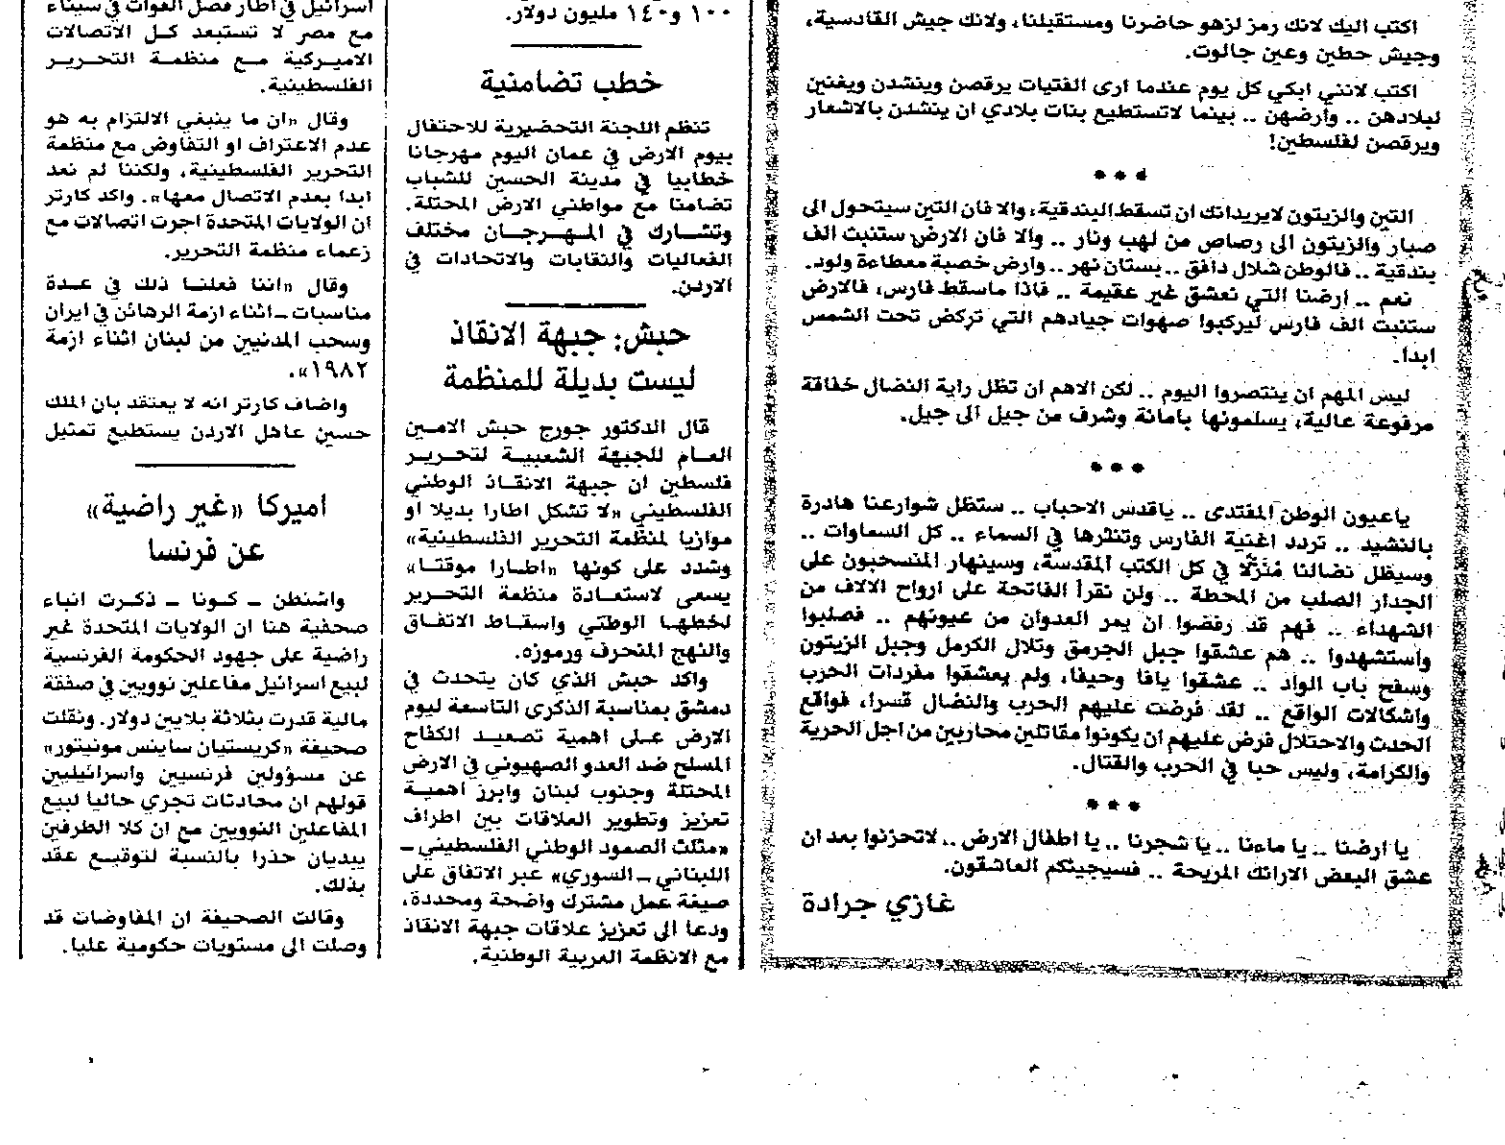 اكتب اليك لانك رمز لزهو حاضرنا ومستقبلنا، ولانك جيش القادسية،
وجيش حطين وعين جالوت.
اكتب لانني ابكي كل يوم عندما ارى الفتيات يرقصن وينشدن ويغنين
لبلادهن .. وأرضهن .. بينما لاتستطيع بنات بلادي ان ينشدن بالاشعار
ويرقصن لفلسطين!
● ● ●
التين والزيتون لايريدانك ان تسقط البندقية، والا فان التين سيتحول الى
صبار والزيتون الى رصاص من لهب ونار .. والا فان الارض ستنبت الف
بندقية .. فالوطن شلال دافق .. بستان نهر .. وارض خصبة معطاءة ولود.
نعم .. ارضنا التي نعشق غير عقيمة .. فاذا ماسقط فارس، فالارض
ستنبت الف فارس ليركبوا صهوات جيادهم التي تركض تحت الشمس
ابدا.
ليس المهم ان ينتصروا اليوم .. لكن الاهم ان تظل راية النضال خفاقة
مرفوعة عالية، يسلمونها بامانة وشرف من جيل الى جيل.
● ● ●
ياعيون الوطن المفتدى .. ياقدس الاحباب .. ستظل شوارعنا هادرة
بالنشيد .. تردد اغنية الفارس وتنثرها في السماء .. كل السماوات ..
وسيظل نضالنا مُنَزّلا في كل الكتب المقدسة، وسينهار المنسحبون على
الجدار الصلب من المحطة .. ولن نقرأ الفاتحة على ارواح الالاف من
الشهداء .. فهم قد رفضوا ان يمر العدوان من عيونهم .. فصلبوا
واستشهدوا .. هم عشقوا جبل الجرمق وتلال الكرمل وجبل الزيتون
وسفح باب الواد .. عشقوا يافا وحيفا، ولم يعشقوا مفردات الحرب
واشكالات الواقع .. لقد فرضت عليهم الحرب والنضال قسرا، فواقع
الحدث والاحتلال فرض عليهم ان يكونوا مقاتلين محاربين من اجل الحرية
والكرامة، وليس حبا في الحرب والقتال.
● ● ●
يا ارضنا .. يا ماءنا .. يا شجرنا .. يا اطفال الارض .. لاتحزنوا بعد ان
عشق البعض الارائك المريحة .. فسيجيئكم العاشقون.
غازي جرادة
١٠٠ و١٤٠ مليون دولار.
خطب تضامنية
تنظم اللجنة التحضيرية للاحتفال
بيوم الارض في عمان اليوم مهرجانا
خطابيا في مدينة الحسين للشباب
تضامنا مع مواطني الارض المحتلة.
وتشارك في المهرجان مختلف
الفعاليات والنقابات والاتحادات في
الاردن.
حبش: جبهة الانقاذ
ليست بديلة للمنظمة
قال الدكتور جورج حبش الامين
العام للجبهة الشعبية لتحرير
فلسطين ان جبهة الانقاذ الوطني
الفلسطيني «لا تشكل اطارا بديلا او
موازيا لمنظمة التحرير الفلسطينية»
وشدد على كونها «اطارا موقتا»
يسعى لاستعادة منظمة التحرير
لخطها الوطني واسقاط الاتفاق
والنهج المنحرف ورموزه.
واكد حبش الذي كان يتحدث في
دمشق بمناسبة الذكرى التاسعة ليوم
الارض على اهمية تصعيد الكفاح
المسلح ضد العدو الصهيوني في الارض
المحتلة وجنوب لبنان وابرز اهمية
تعزيز وتطوير العلاقات بين اطراف
«مثلث الصمود الوطني الفلسطيني ـ
اللبناني ـ السوري» عبر الاتفاق على
صيغة عمل مشترك واضحة ومحددة،
ودعا الى تعزيز علاقات جبهة الانقاذ
مع الانظمة العربية الوطنية.
اسرائيل في اطار فصل القوات في سيناء
مع مصر لا تستبعد كل الاتصالات
الاميركية مع منظمة التحرير
الفلسطينية.
وقال «ان ما ينبغي الالتزام به هو
عدم الاعتراف او التفاوض مع منظمة
التحرير الفلسطينية، ولكننا لم نعد
ابدا بعدم الاتصال معها». واكد كارتر
ان الولايات المتحدة اجرت اتصالات مع
زعماء منظمة التحرير.
وقال «اننا فعلنا ذلك في عدة
مناسبات ـ اثناء ازمة الرهائن في ايران
وسحب المدنيين من لبنان اثناء ازمة
١٩٨٢».
واضاف كارتر انه لا يعتقد بان الملك
حسين عاهل الاردن يستطيع تمثيل
اميركا «غير راضية»
عن فرنسا
واشنطن ـ كونا ـ ذكرت انباء
صحفية هنا ان الولايات المتحدة غير
راضية على جهود الحكومة الفرنسية
لبيع اسرائيل مفاعلين نوويين في صفقة
مالية قدرت بثلاثة بلايين دولار. ونقلت
صحيفة «كريستيان ساينس مونيتور»
عن مسؤولين فرنسيين واسرائيليين
قولهم ان محادثات تجري حاليا لبيع
المفاعلين النوويين مع ان كلا الطرفين
يبديان حذرا بالنسبة لتوقيع عقد
بذلك.
وقالت الصحيفة ان المفاوضات قد
وصلت الى مستويات حكومية عليا.